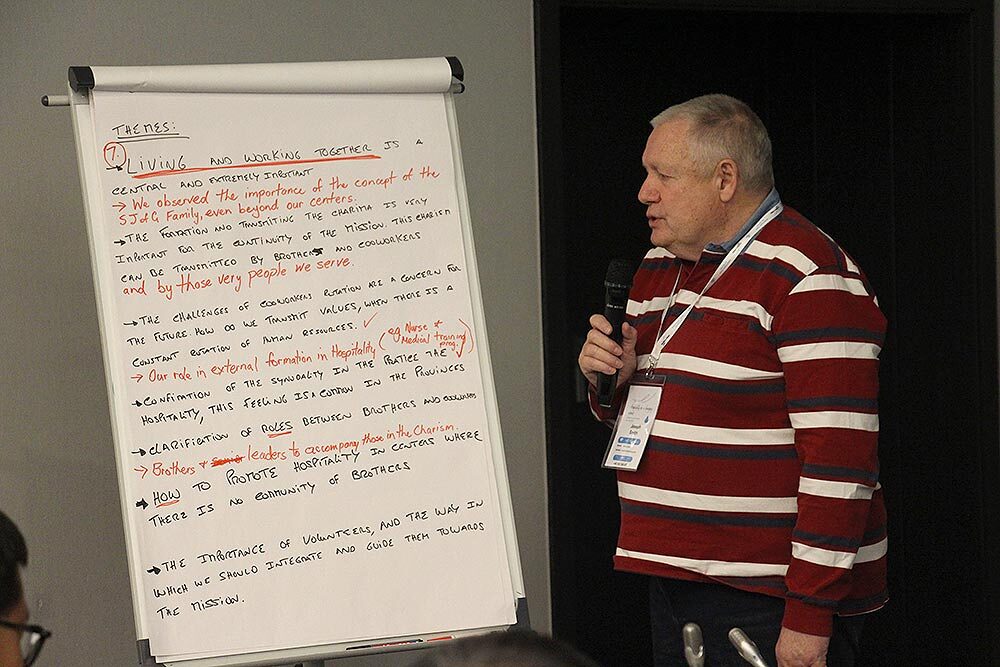 THEMES:
7. LIVING AND WORKING TOGETHER IS A
CENTRAL AND EXTREMELY IMPORTANT
→ We observed the importance of the concept of the
SJofG Family, even beyond our centers.
→ THE FORMATION AND TRANSMITING THE CHARISMA IS VERY
IMPORTANT FOR THE CONTINUITY OF THE MISSION. THIS CHARISM
CAN BE TRANSMITTED BY BROTHERS AND COOWORKERS
and by those very people we serve.
→ THE CHALLENGES OF COOWORKERS ROTATION ARE A CONCERN FOR
THE FUTURE. HOW DO WE TRANSMIT VALUES, WHEN THERE IS A
CONSTANT ROTATION OF HUMAN RESOURCES. ✓
→ Our role in external formation in Hospitality (eg Nurse &
Medical training
prog. ✓)
→ CONFIRMATION OF THE SYNODALITY IN THE PRATICE THE
HOSPITALITY, THIS FEELING IS A COMMON IN THE PROVINCES
→ CLARIFICATION OF ROLES BETWEEN BROTHERS AND COOWORKERS
→ Brothers & leaders to accompany those in the Charism.
→ HOW TO PROMOTE HOSPITALITY IN CENTERS WHERE
THERE IS NO COMMUNITY OF BROTHERS
→ THE IMPORTANCE OF VOLUNTEERS, AND THE WAY IN
WHICH WE SHOULD INTEGRATE AND GUIDE THEM TOWARDS
THE MISSION.